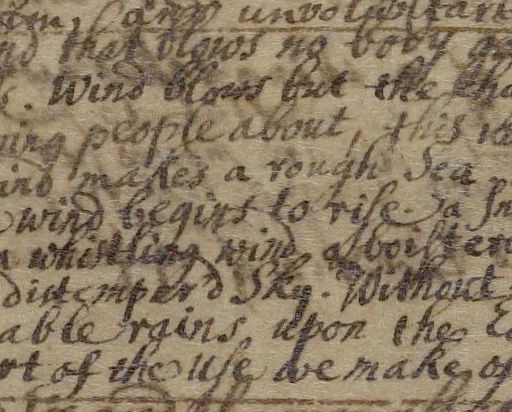 and unvoluntari
nd that blows no body go
s. Wind blows but the cha
ning people about, this is
ind makes a rough Sea
wind begins to rise. a sn
a whistling wind a boistero
distemper'd Sky. Without
able rains upon the Ea
rt of the Use we make of